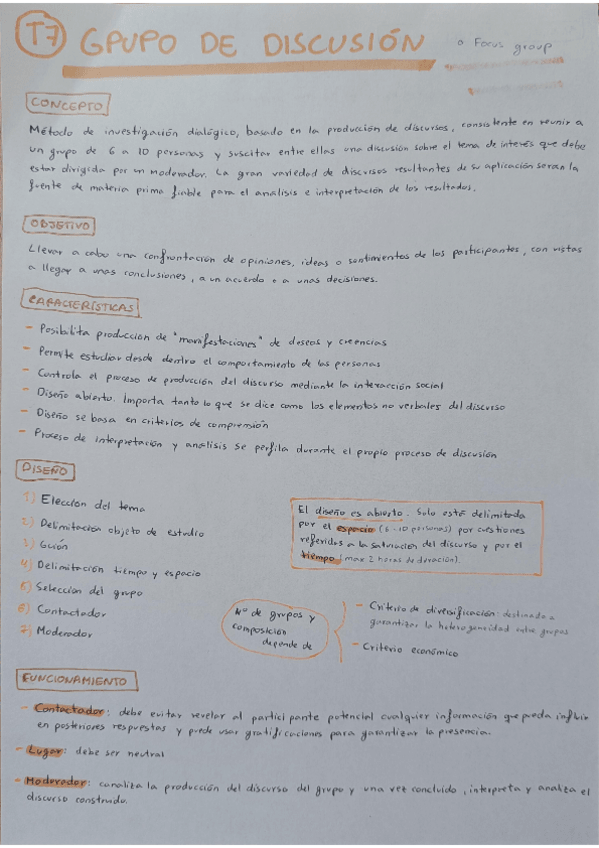 T7 GRUPO DE DISCUSIÓN o Focus group
CONCEPTO
Método de investigación dialógico, basado en la producción de discursos, consistente en reunir a
un grupo de 6 a 10 personas y suscitar entre ellas una discusión sobre el tema de interés que debe
estar dirigida por un moderador. La gran variedad de discursos resultantes de su aplicación serán la
fuente de materia prima fiable para el analisis e interpretación de los resultados.
OBJETIVO
Llevar a cabo una confrontación de opiniones, ideas o sentimientos de los participantes, con vistas
a llegar a unas conclusiones, a un acuerdo o a unas decisiones.
CARACTERÍSTICAS
- Posibilita producción de "manifestaciones" de deseos y creencias
- Permite estudiar desde dentro el comportamiento de las personas
- Controla el proceso de producción del discurso mediante la interacción social
- Diseño abierto. Importa tanto lo que se dice como los elementos no verbales del discurso
- Diseño se basa en criterios de comprensión
- Proceso de interpretación y analisis se perfila durante el propio proceso de discusión
DISEÑO
1) Elección del tema
2) Delimitación objeto de estudio
3) Guión
4) Delimitación tiempo y espacio
5) Selección del grupo
6) Contactador
7) Moderador
El diseño es abierto. Solo está delimitada
por el espacio (6-10 personas) por cuestiones
referidas a la saturación del discurso y por el
tiempo (max 2 horas de duración).
Nº de grupos y
composición
depende de
- Criterio de diversificación: destinado a
garantizar la heterogeneidad entre grupos
- Criterio económico
FUNCIONAMIENTO
- Contactador: debe evitar revelar al participante potencial cualquier información que pueda influir
en posteriores respuestas y puede usar gratificaciones para garantizar la presencia.
- Lugar: debe ser neutral
- Moderador: canaliza la producción del discurso del grupo y una vez concluido, interpreta y analiza el
discurso construido.